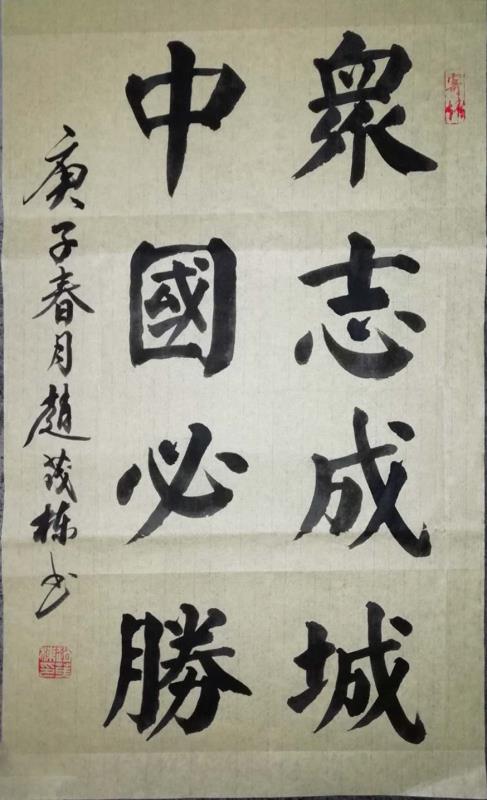 衆志成城
中國必勝
庚子春月趙茂棟书